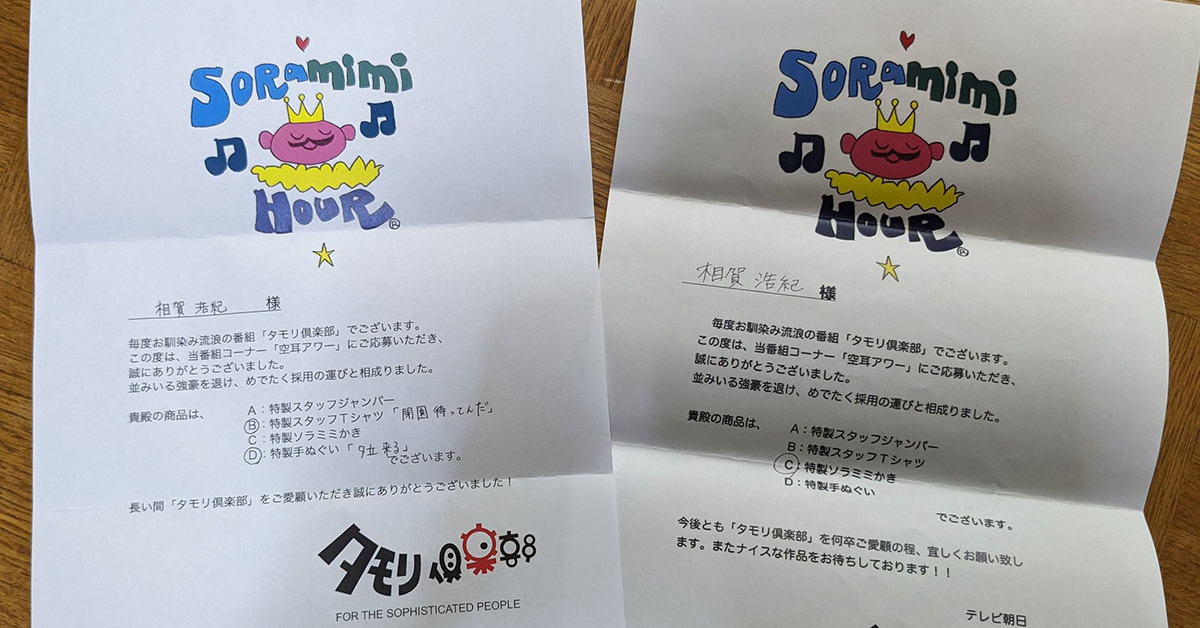 SORamimi
HOUR®
相賀 浩紀 様
毎度お馴染み流浪の番組「タモリ倶楽部」でございます。
この度は、当番組コーナー「空耳アワー」にご応募いただき、
誠にありがとうございました。
並みいる強豪を退け、めでたく採用の運びと相成りました。
貴殿の商品は、
A：特製スタッフジャンパー
B：特製スタッフTシャツ「閉園待ってんだ」
C：特製ソラミミかき
D：特製手ぬぐい「 来る」
でございます。
長い間「タモリ倶楽部」をご愛顧いただき誠にありがとうございました！
タモリ倶楽部
FOR THE SOPHISTICATED PEOPLE
SORamimi
HOUR®
相賀 浩紀 様
毎度お馴染み流浪の番組「タモリ倶楽部」でございます。
この度は、当番組コーナー「空耳アワー」にご応募いただき、
誠にありがとうございました。
並みいる強豪を退け、めでたく採用の運びと相成りました。
貴殿の商品は、
A：特製スタッフジャンパー
B：特製スタッフTシャツ
C：特製ソラミミかき
D：特製手ぬぐい
でございます。
今後とも「タモリ倶楽部」を何卒ご愛顧の程、宜しくお願い致し
ます。またナイスな作品をお待ちしております！！
テレビ朝日